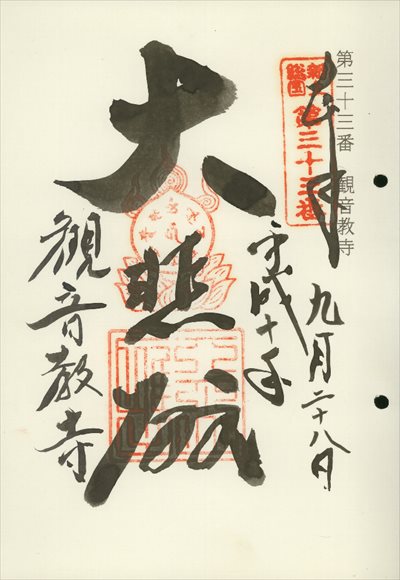 第三十三番 観音教寺
奉拝
新
総国
第三十三番
九月二十八日
平成十年
大悲殿
観音教寺